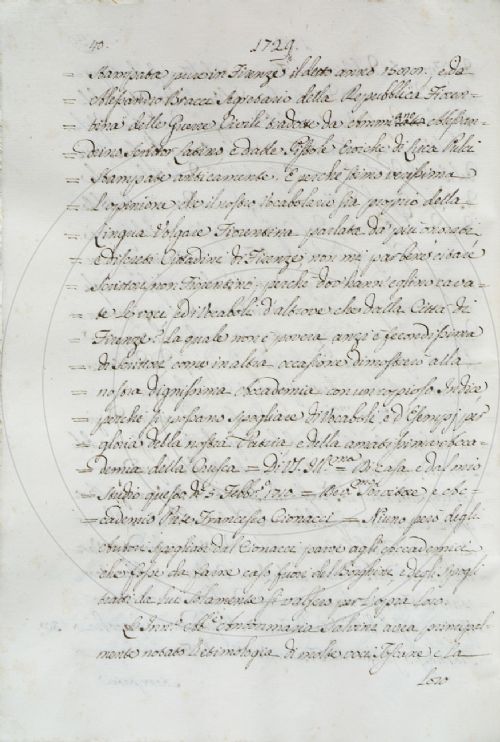 40. 1729.
= Stampata pure in Firenze il detto anno e da
= Alessandro Bracci Segretario della Repubblica Fioren=
= tina delle Guerre Civili tradotte da Alessan=
= drino Scrittor Latino e dalle Pistole Eroiche di Luca Pulci
= Stampate anticamente. E perché stimo verissima
= L'opinione che il nostro Vocabolario sia proprio della
= Lingua Volgare Fiorentina parlata da più onorati
= e discreti Cittadini di Firenze, non mi par bene citare
= Scrittori non Fiorentini, perché
= te le voci, ed i Vocaboli d'altrove che dalla Città di
= Firenze? La quale non è povera anzi è fecondissima
= di Scrittori come in altra occasione dimostrerò alla
= nostra dignissima Accademia con un copioso Indice
= perché si possano spogliare di Vocaboli, e d'Esempj per
= gloria della nostra Patria e della amatissima Acca=
= demia della Crusca = Di Casa e dal mio
= Studio questo dì 5 Febbr.o 1710 = Servitore, e Ac=
= cademico Prete Francesco Cionacci = Niuno però degli
Autori spogliati dal Cionacci parve agli Accademici
che fosse da farne caso fuori del Borghini e degli Spogli
da lui solamente si valsero per l'opra loro.
Anton maria Salvini avea principal=
mente notato l'etimologia di molte voci Toscane e la
loro